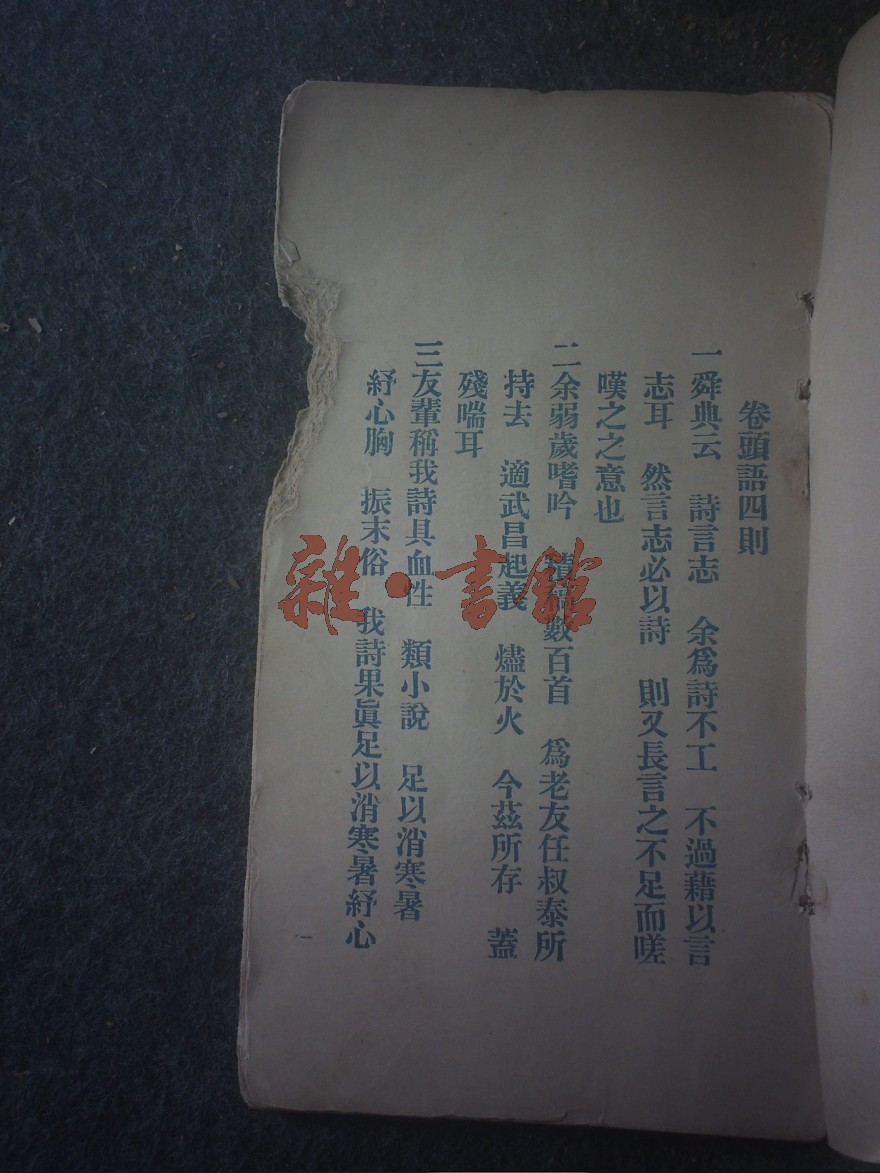 卷頭語四則
一舜典云　詩言志　余爲詩不工　不過藉以言
志耳　然言志必以詩　則又長言之不足而嗟
嘆之之意也
二余弱歲嗜吟　積稿數百首　爲老友任叔泰所
持去　適武昌起義　燼於火　今茲所存　蓋
殘喘耳
三友輩稱我詩具血性　類小說　足以消寒暑
紓心胸　振末俗　我詩果眞足以消寒暑紓心
一
雜·書館